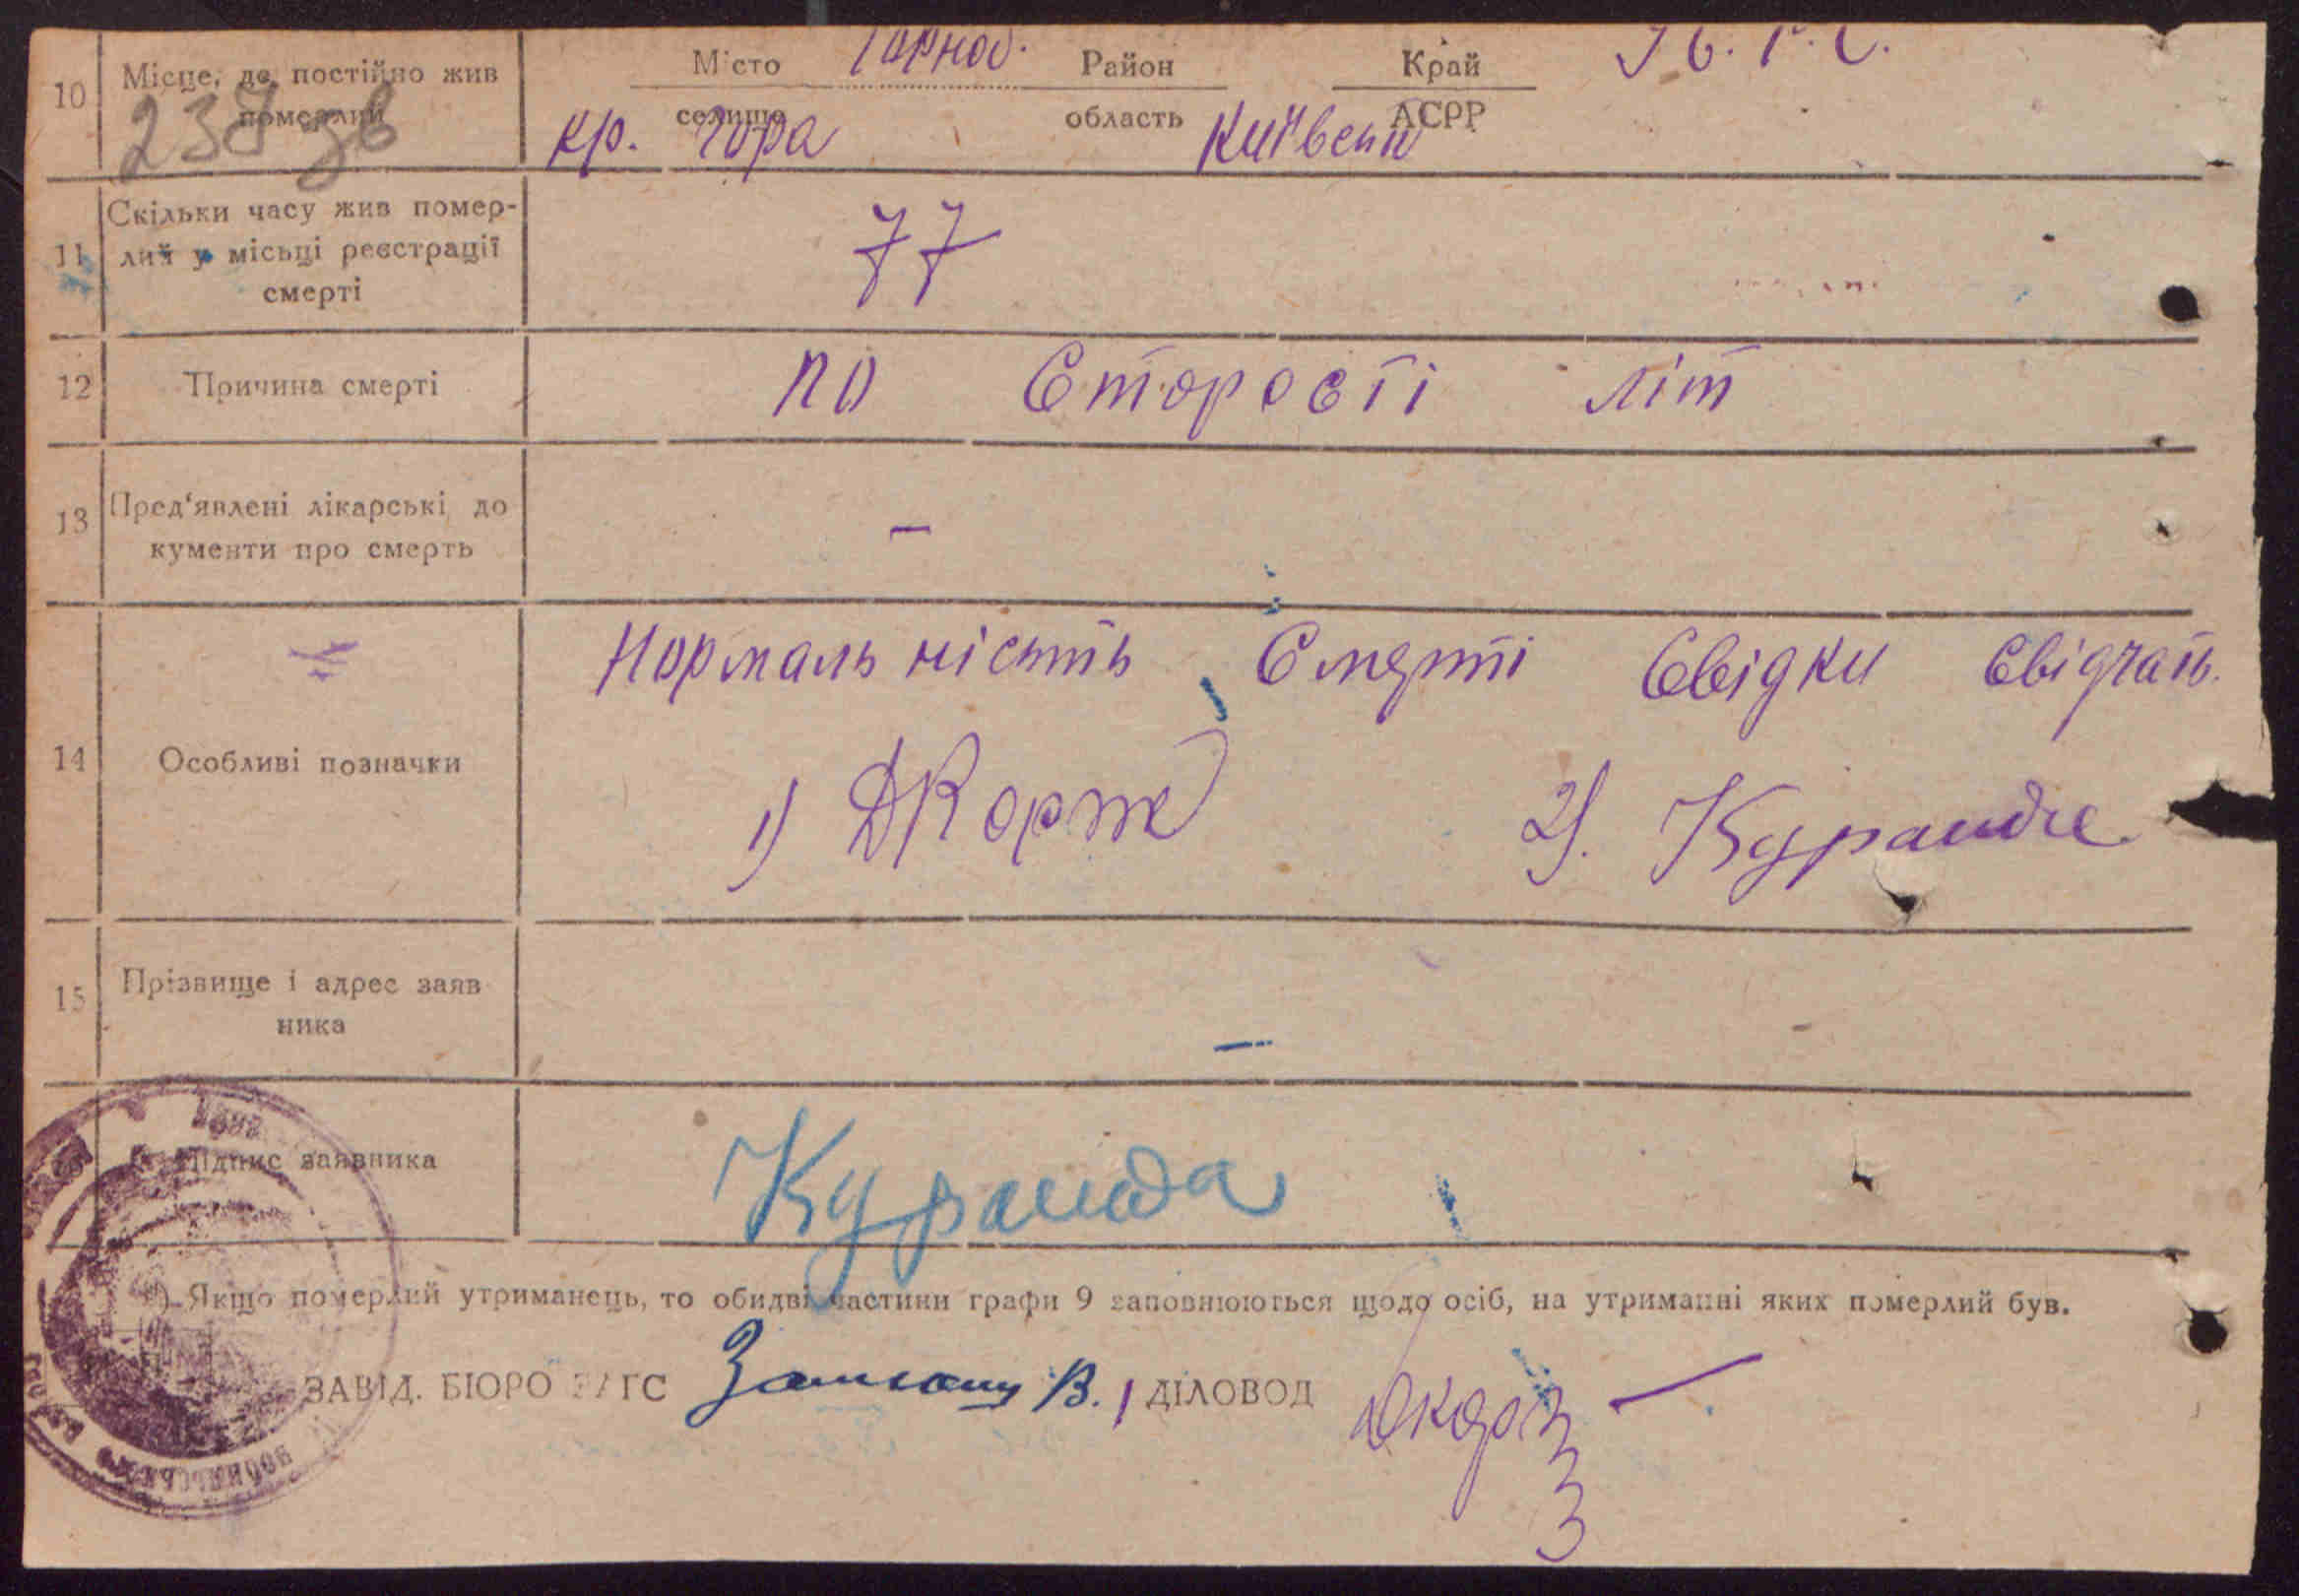 10 Місце, де постійно жив померлий
Місто селище
Район область Київськ
Край АСРР
кр. гора
238 зв
11 Скільки часу жив помер-
лий у місьці реєстрації
смерті
77
12 Причина смерті
по Сторості літ
13 Пред'явлені лікарські до
кументи про смерть
—
14 Особливі позначки
Нормаль ність Смерті Свідки свідчать.
1) ДКорж 2). Куранда
15 Прізвище і адрес заяв
ника
—
Підпис заявника
Куранда
*) Якщо померлий утриманець, то обидві частини графи 9 заповнюються щодо осіб, на утриманні яких померлий був.
ЗАВІД. БЮРО ЗАГС В. ДІЛОВОД